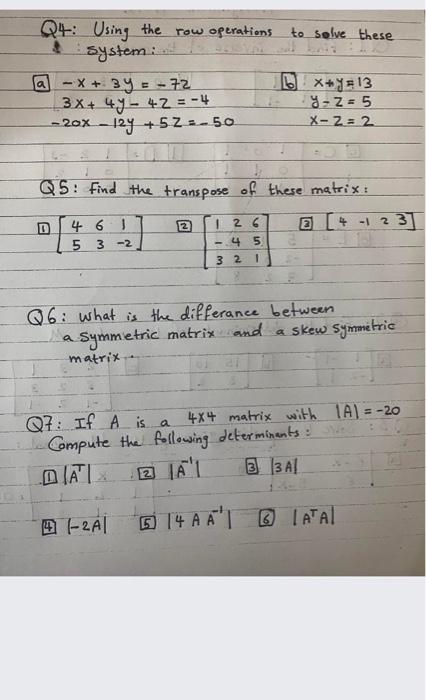 Q4: Using the row operations to solve these
system:
a -x + 3y = -72
3x + 4y - 4z = -4
-20x - 12y + 5z = -50
b x+y=13
y-z=5
x-z=2
Q5: Find the transpose of these matrix:
1 [ 4 6 1
5 3 -2 ]
2 [ 1 2 6
- 4 5
3 2 1 ]
3 [ 4 -1 2 3 ]
Q6: what is the differance between
a symmetric matrix and a skew symmetric
matrix.
Q7: If A is a 4x4 matrix with |A| = -20
Compute the following determinants:
1 |Aᵀ| 2 |A⁻¹| 3 |3A|
4 |-2A| 5 |4 A A⁻¹| 6 |AᵀA|